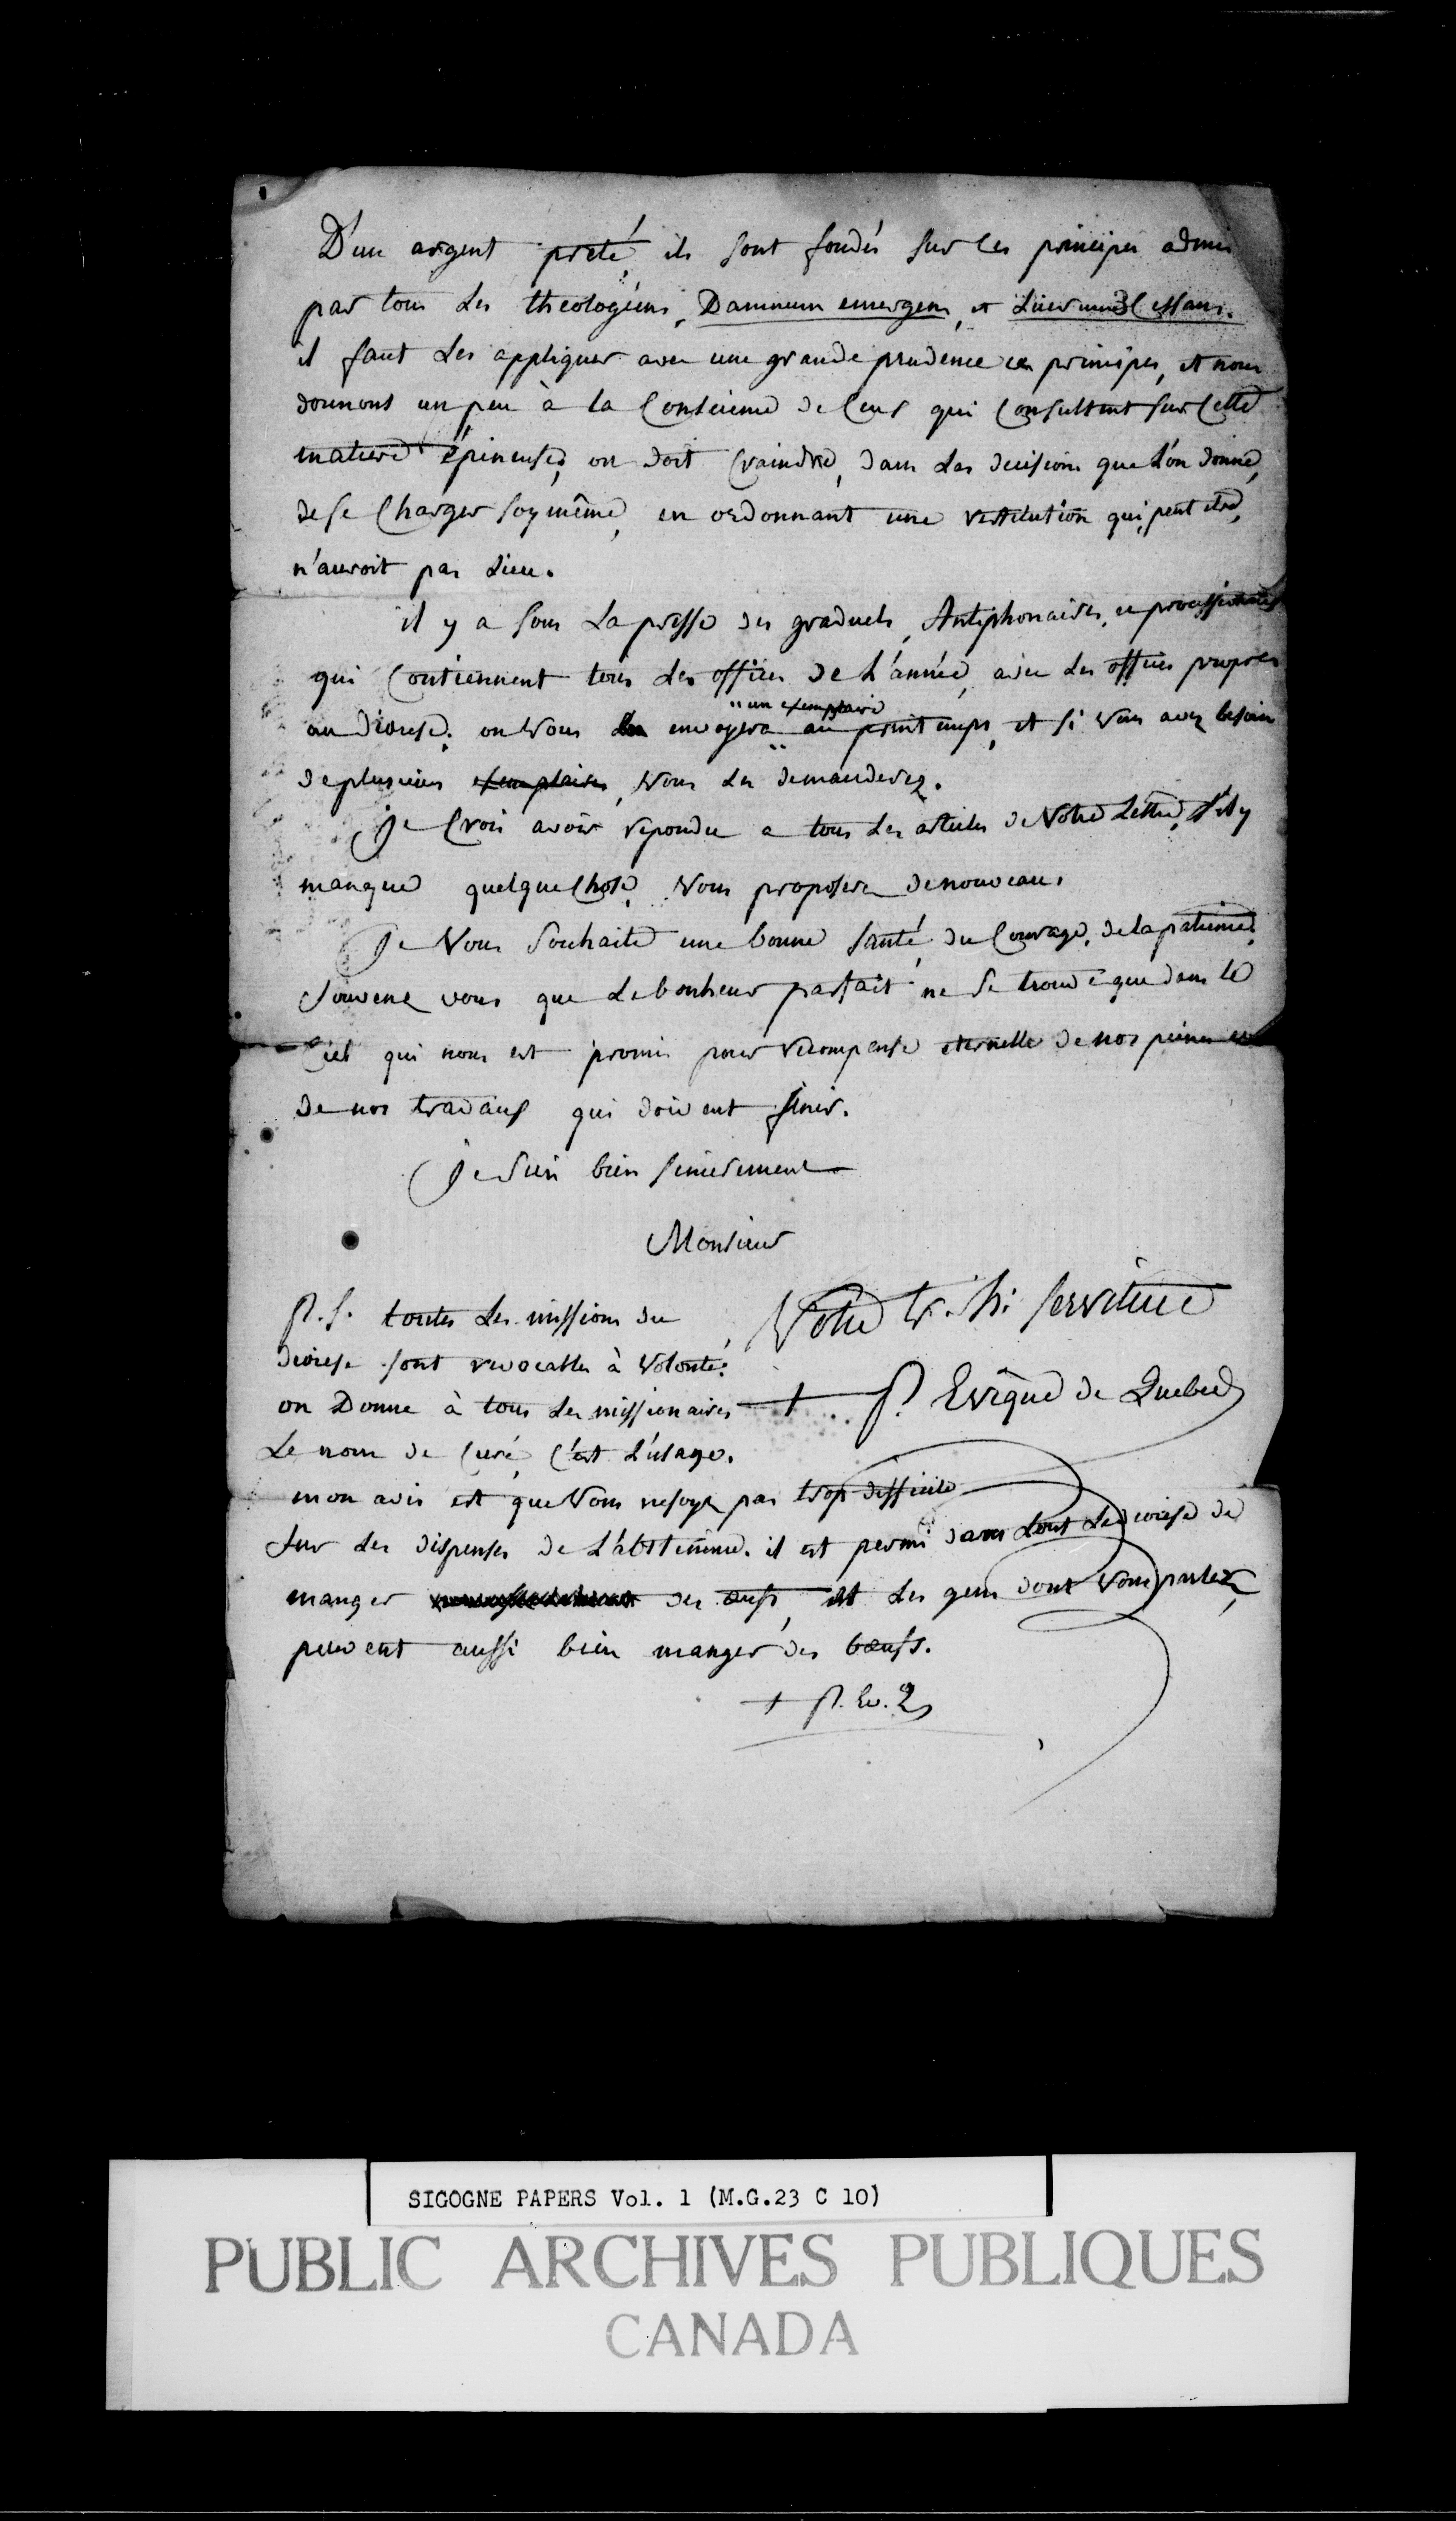 D'un argent preté, ils sont fondés sur les principes admis
par tous les theologiens, Damnum emergens, et Lucrum Cessans.
il faut les appliquer avec une grande prudence ces principes, et nous
donnons un peu à la Conscience de Ceux qui Consultent sur Cette
matiere épineuse, on doit Craindre, dans les decisions que L'on donne,
de se Charger soymême, en ordonnant une restitution qui, peut etre,
n'auroit pas Lieu.
il y a sous La presse des graduels, Antiphonaires, et processionaux
qui Contiennent tous les offices de L'année, avec les offices propres
au diocese. on vous envoyera au printemps, et si vous avez besoin
un exemplaire
de plusieurs exemplaires, vous les demanderez.
Je Crois avoir repondu a tous les articles de Votre Lettre, s'il y
manque quelque Chose, vous proposerez de nouveau.
Je Vous Souhaite une bonne santé, du Courage, de la patience,
Souvenez vous que Le bonheur parfait ne se trouve que dans le
Ciel qui nous est promis pour recompense eternelle de nos peines et
de nos travaux qui doivent finir.
Je suis bien sincerement
Monsieur
Votre tr. h. serviteur
+ P. Evêque de Quebec
P.S. toutes les missions du
diocese sont revocables à Volonté.
on Donne à tous les missionaires
Le nom de Curé, C'est L'usage.
mon avis est que Vous ne soyez pas trop difficile
sur les dispenses de L'abstinence. il est permis dans tout Le diocese de
manger des oeufs, et les gens dont vous parlez,
peuvent aussi bien manger des boeufs.
+ P. Ev. Q
SIGOGNE PAPERS Vol. 1 (M.G.23 C 10)
PUBLIC ARCHIVES PUBLIQUES
CANADA